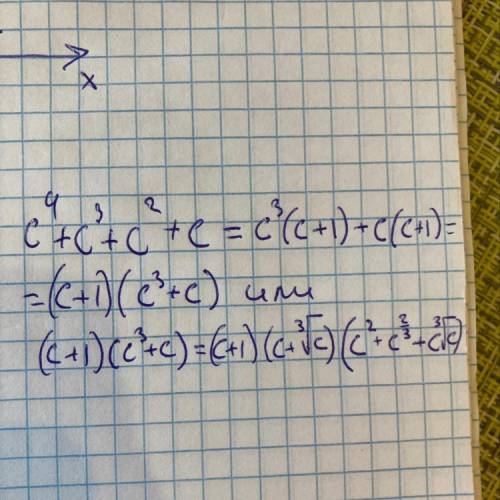 x
c⁴+c³+c²+c = c³(c+1)+c(c+1)=
=(c+1)(c³+c) или
(c+1)(c³+c)=(c+1)(c+∛c)(c²+c^⅔+c∛c)